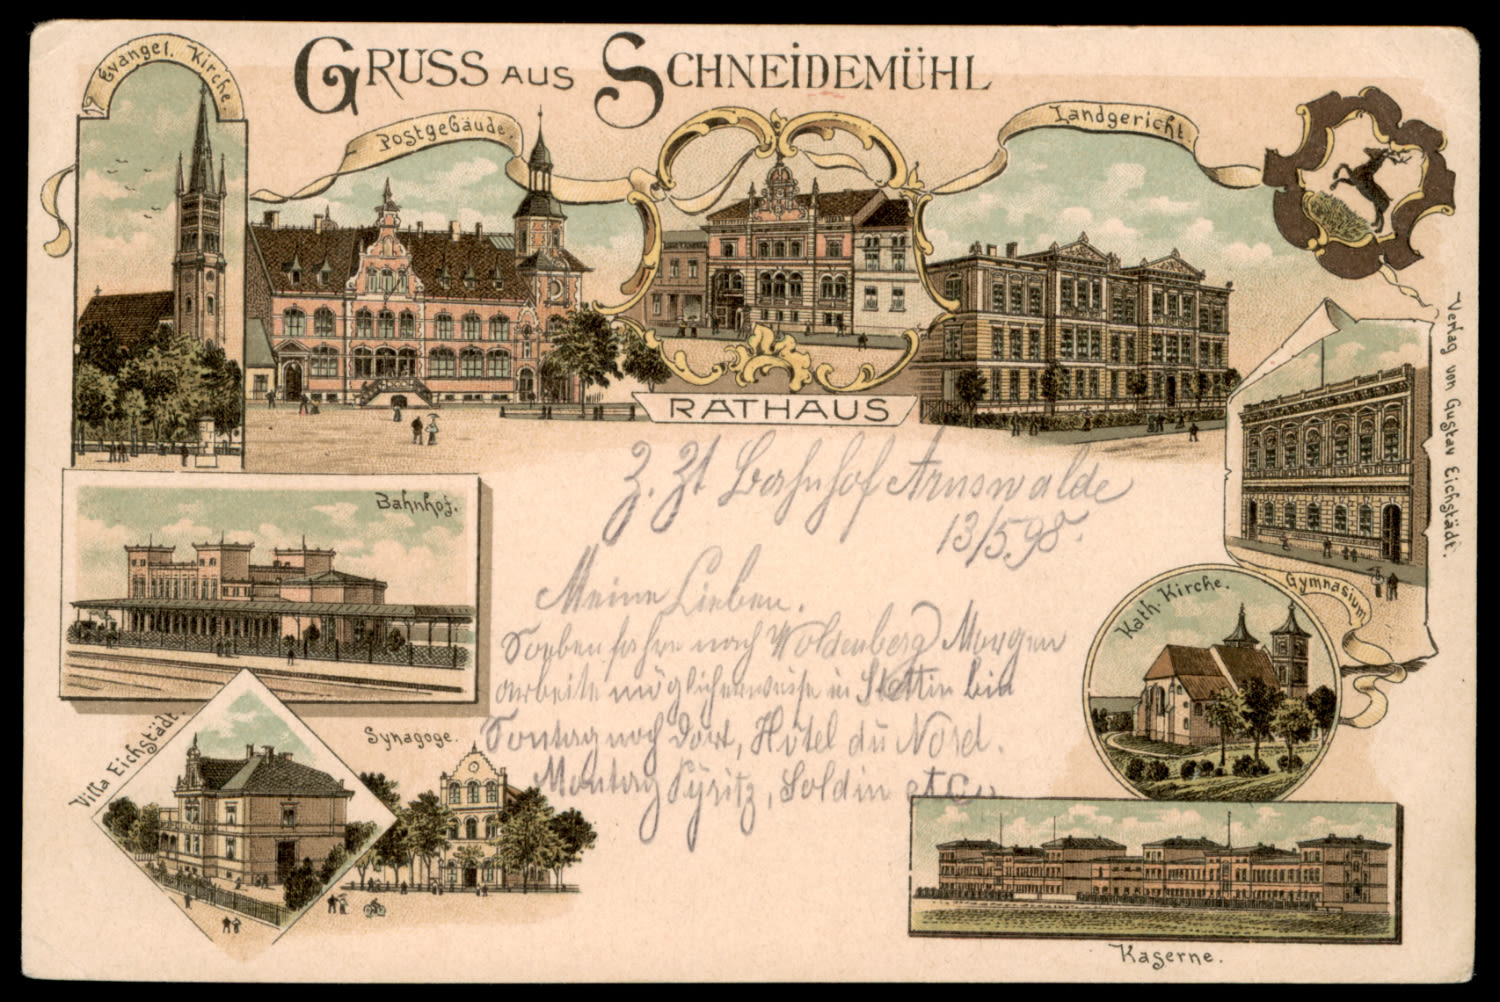 GRUSS AUS SCHNEIDEMÜHL
Evangel. Kirche.
Postgebäude.
RATHAUS
Landgericht
Verlag von Gustav Eichstädt.
Gymnasium
Bahnhof.
Kath. Kirche.
Villa Eichstädt.
Synagoge.
Kaserne.
z. Zt Bahnhof Arnswalde
13/5.98.
Meine Lieben.
Soeben fahre nach Woldenberg Morgen
arbeite möglicherweise in Stettin bin
Sontag noch dort, Hôtel du Nord.
Montag Pyritz, Soldin etc.